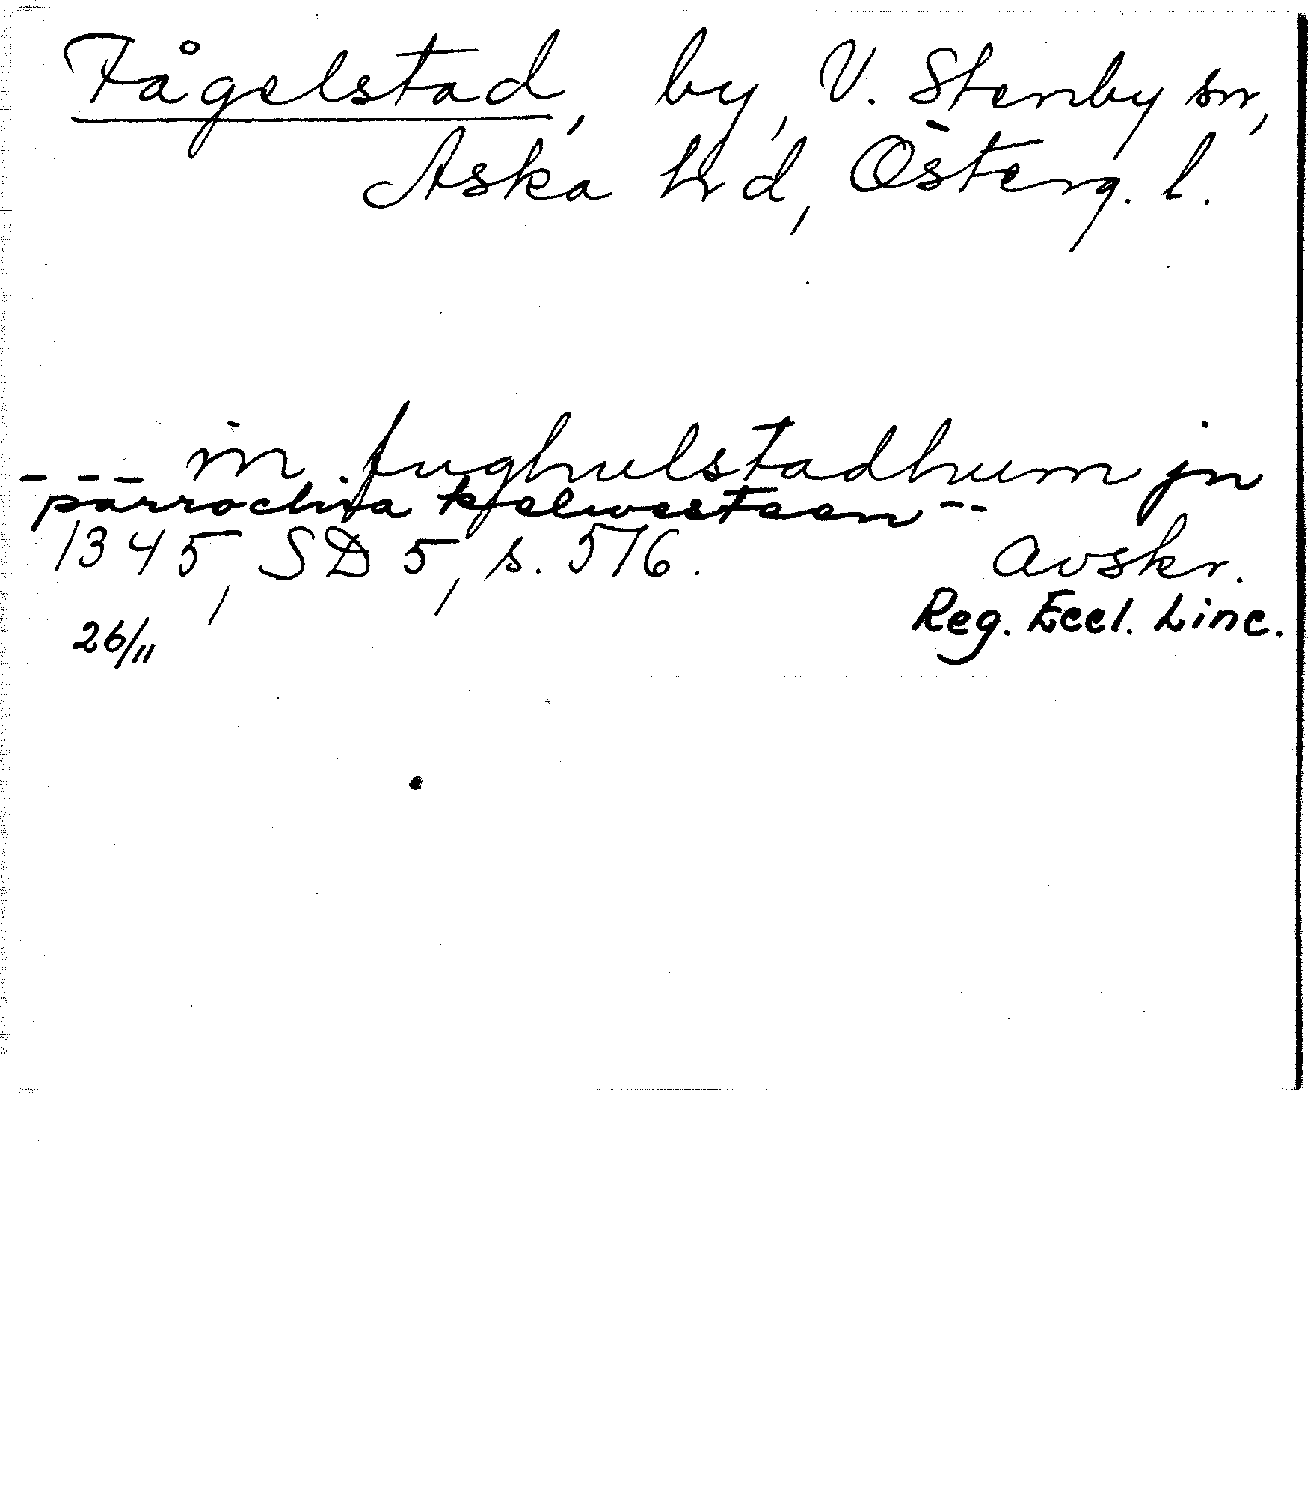 Fågelstad, by, V. Stenby sn,
Aska hrd, Österg. l.
--- in fughulstadhum jn
parrochia kjelwesteen --
1345, SD 5, s. 516. Avskr.
26/11 Reg. Eccl. Linc.